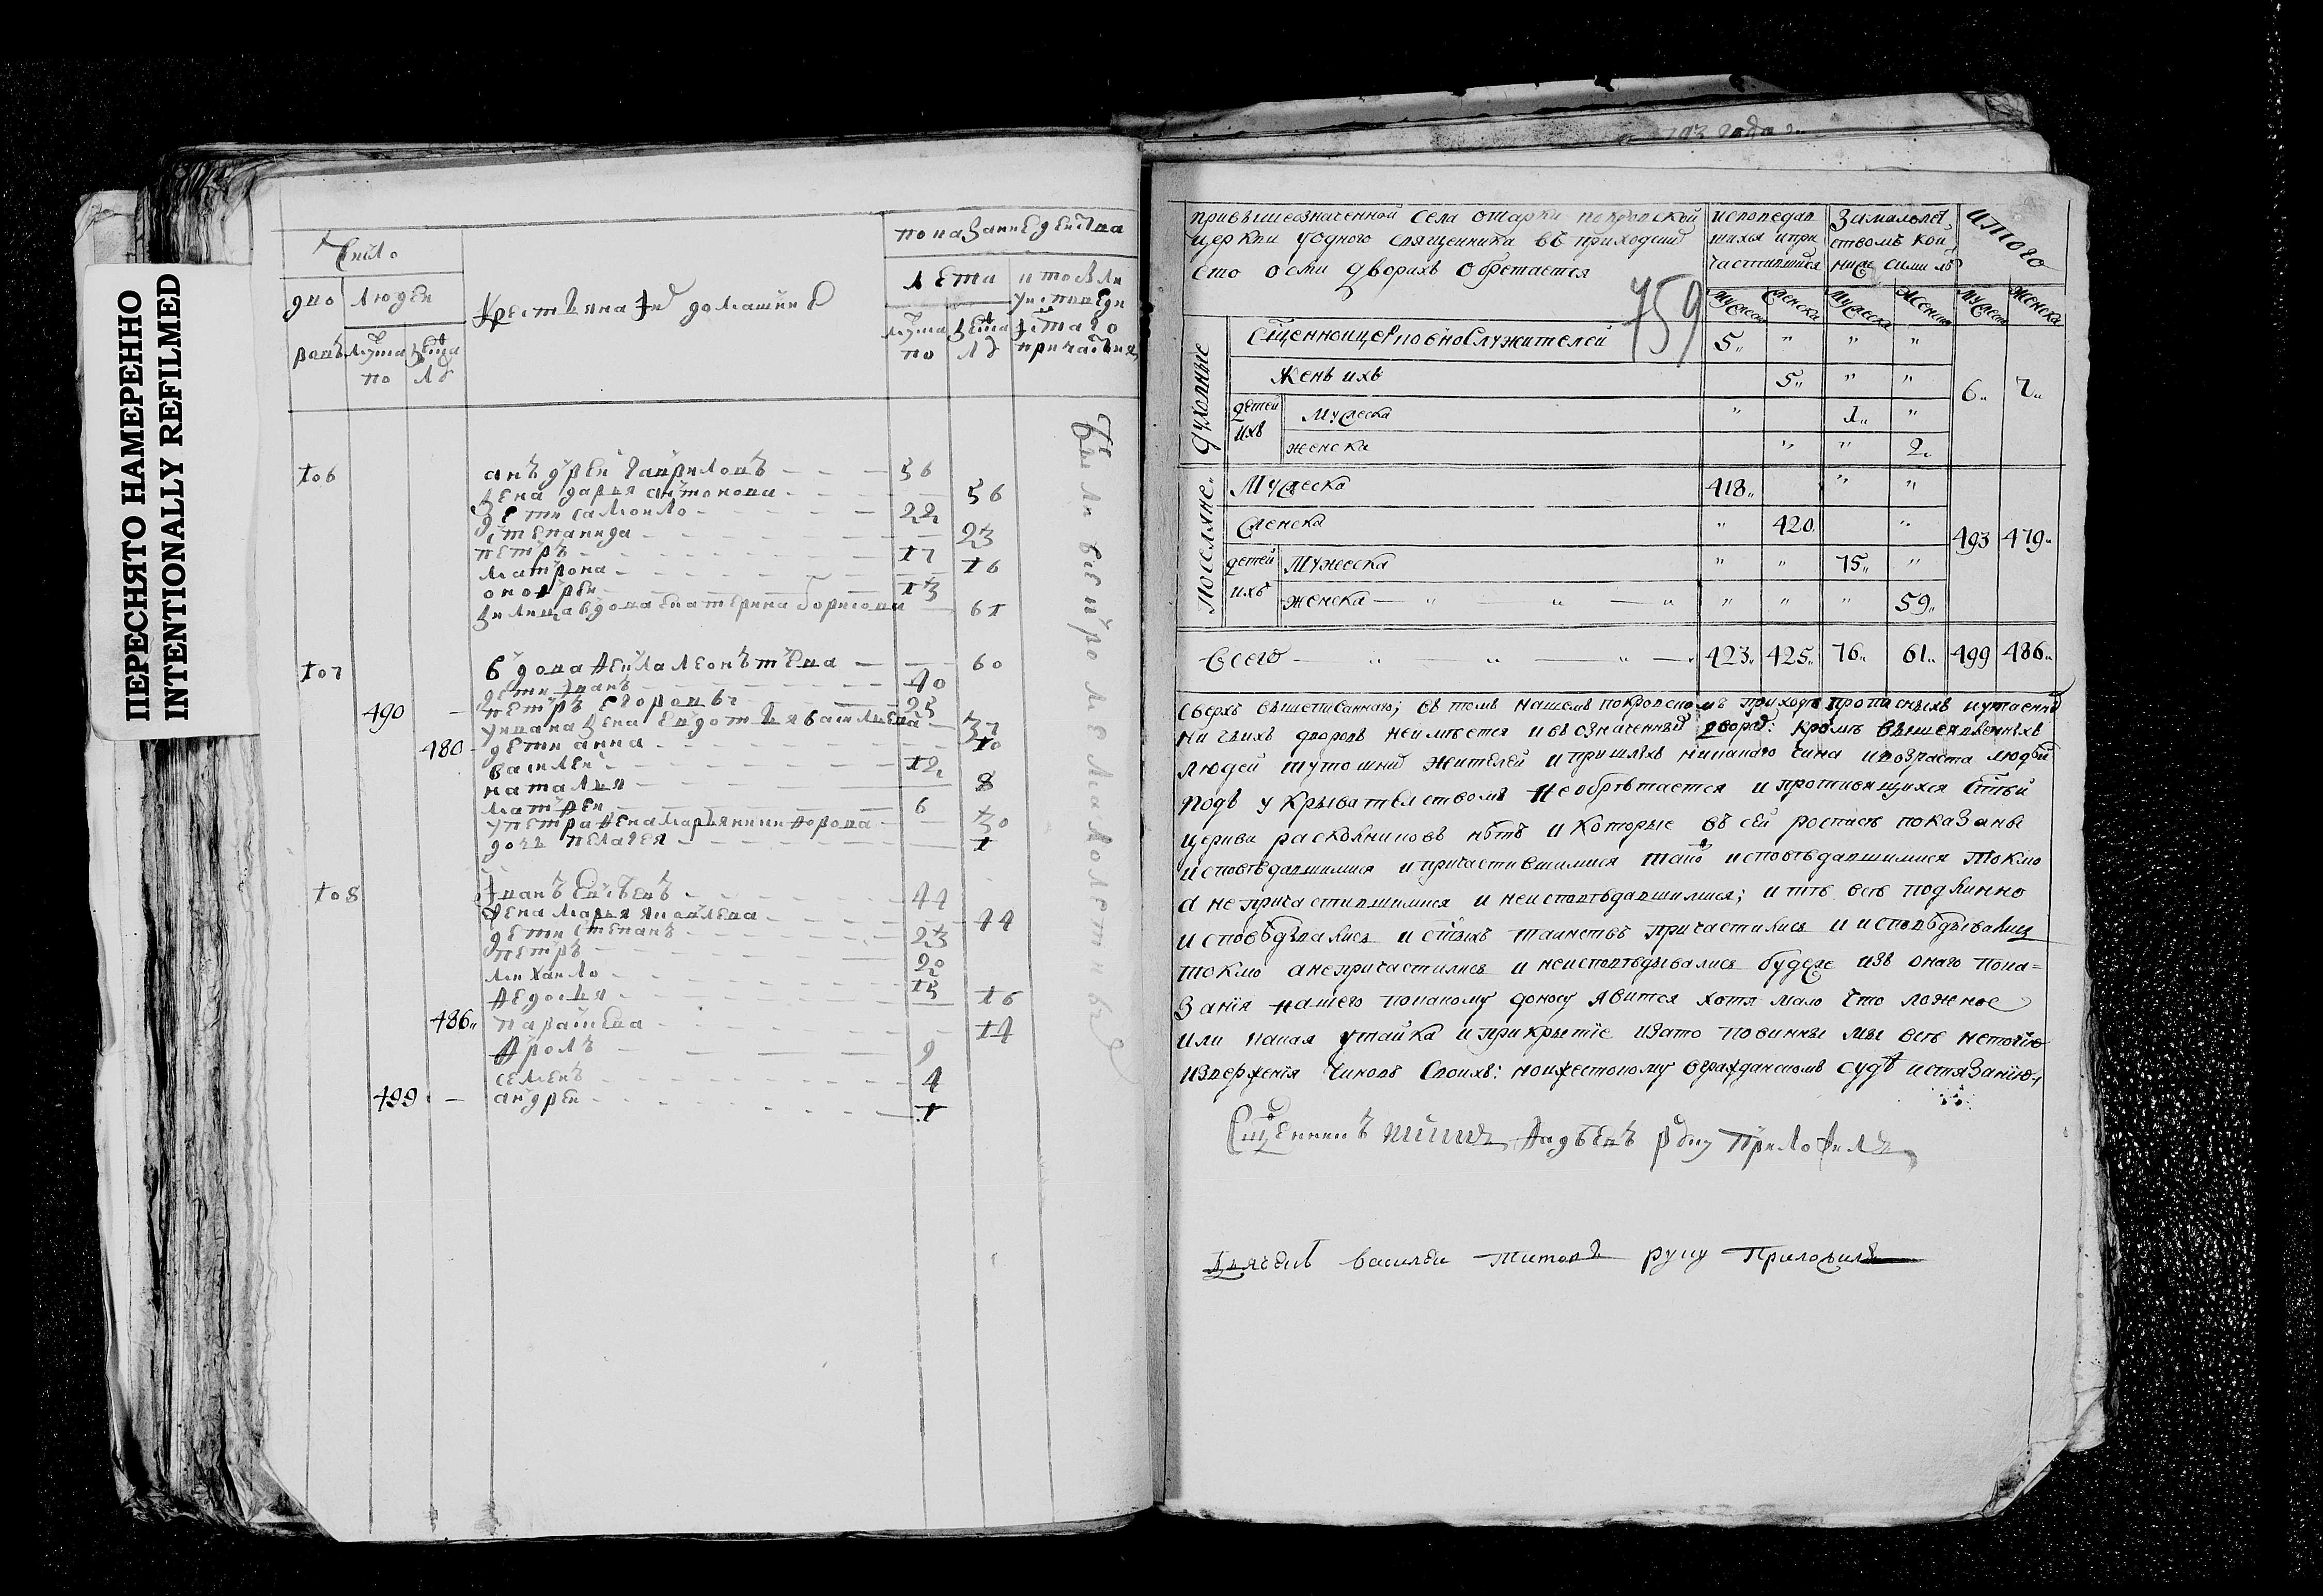 ПЕРЕСНЯТО НАМЕРЕННО
INTENTIONALLY REFILMED
Число
дво
ровъ
людей
мужеска по
женска
Крестьяна и их домашние
показание действа
лета
мужеска по
женска
и тосвли у исповеди
и стаго причастия
106
анъдрей гавриловъ 56
жена дарья антонова 56
дети самоило 22
степанида 23
петръ 17
матрона 16
онофрей 13
вдова екатерина борисова 61
107
вдова фекла леонътева 60
дети иванъ 40
490 петръ егоровы 25
у ивана жена евдотья василиева 37
480 дети анна 10
василей 12
наталья 8
матфей 6
у петра жена марья никифорова 30
дочь пелагея 1
108
иванъ 44
жена марья яковлева 44
дети степанъ 23
петръ 20
михаило 15
федосья 16
486 парасковья 14
фролъ 9
семенъ 4
499 андрей 1
все
759
привышеозначенной села ошарки покровской
церкви уодного священника въ приходстве
сто осми дворахъ обретается
исповедав
шихся и при
частившихся
замалолет
ствомъ кои
ниже сими летъ
итого
мужеска женска мужеска женска мужеска женска
духовные
сщенноцерковнослужителей 5 " " "
женъ ихъ 5 " " 6 7
детей ихъ
мужеска " 1 "
женска " " 2
поселяне
мужеска 418 " "
женска " 420 " 493 479
детей ихъ
мужеска " " 75 "
женска " " " 59
всего 423 425 76 61 499 486
сверхъ вышеписанного; въ томъ нашемъ покровскомъ приходе прописныхъ и утаенных
ни чьихъ дворовъ неимѣется и въ означенных дворех: кромѣ вышеявленныхъ
людей тутошних жителей и пришлыхъ никакого чина и возраста людей
подъ укрывателствомъ необрѣтается и противящихся стей
церкви расколниковъ нѣтъ и которые въ сей росписѣ показаны
исповѣдавшимися и причастившимися тако исповѣдавшимися токмо
а не причастившимися и неисповѣдавшимися; и тѣ всѣ подлинно
исповѣдывались и стыхъ таинствъ причастились и исповѣдывались
токмо а непричастились и неисповѣдывались будеже изъ онаго пока=
зания нашего покакому доносу явится хотя мало что ложное
или какая утайка и прикрытие и зато повинны мы всѣ неточию
извержения чиновъ своихъ: но и жестокому вгражданскомъ судѣ истязанию
Сщенникъ никита авдѣевъ руку приложилъ
дьячекъ василей титовъ руку приложилъ